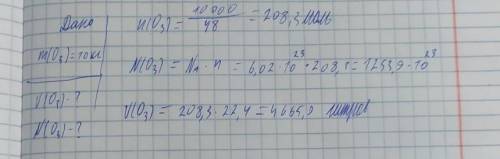 Дано
m(O₃)=10кг
V(O₃)-?
N(O₃)-?
n(O₃)= 10000/48 =208,3 моль
N(O₃) = Nₐ · n = 6,02·10²³ · 208,3=1253,9·10²³
V(O₃)= 208,3·22,4=4665,9 литров